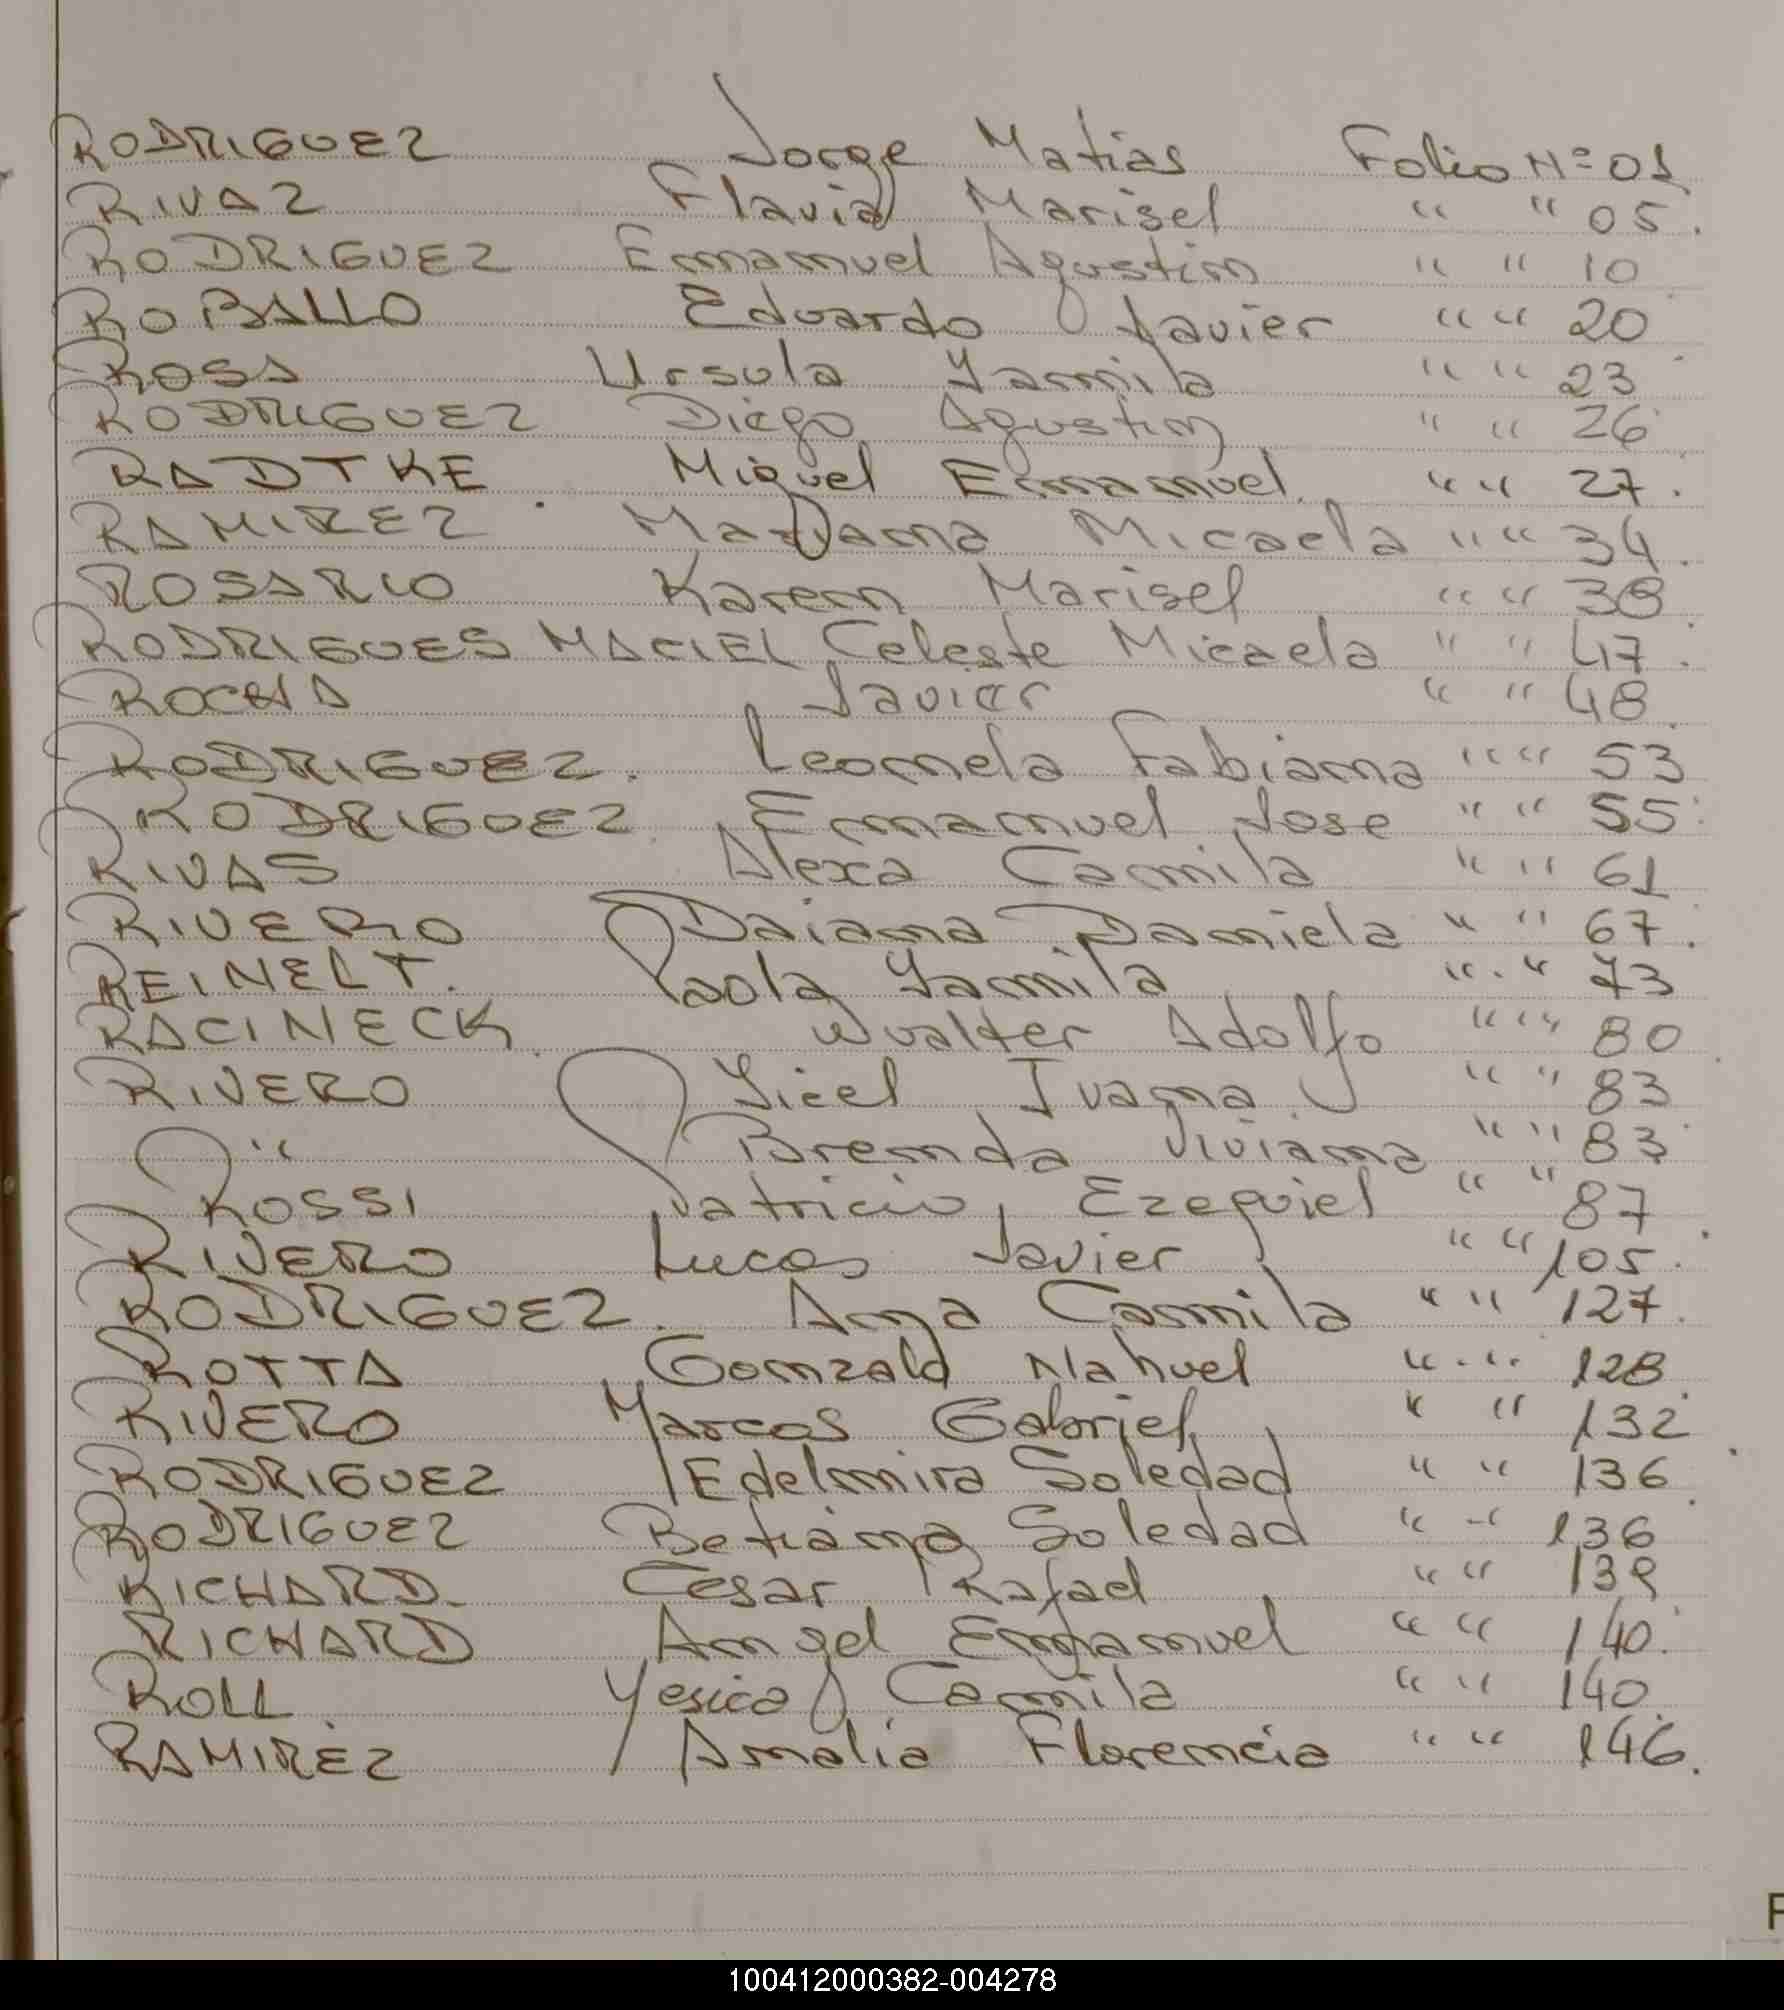 RODRIGUEZ Jorge Matias Folio Nº 01
RIVAZ Flavia Marisel " " 05.
RODRIGUEZ Emmanuel Agustin " " 10
ROBALLO Eduardo Javier " " 20
ROSA Ursula Yamila " " 23
RODRIGUEZ Diego Agustin " " 26
RADTKE Miguel Emmanuel. " " 27.
RAMIREZ Micaela " " 34.
ROSARIO Karem Marisel " " 38
RODRIGUES MACIEL Celeste Micaela " " 47.
ROCHA Javier " " 48.
RODRIGUEZ. Leonela Fabiana " " 53
RODRIGUEZ. Emmanuel Jose " " 55.
RIVAS Alexa Camila " " 61
RIVERO Daiana Daniela " " 67.
REINELT. Paola Yamila " " 73
RACINECK. Wualter Adolfo " " 80
RIVERO Yicel Ivana. " " 83
" Brenda Viviana " " 83
ROSSI Patricio Ezequiel " " 87
RIVERO Lucas Javier " " 105.
RODRIGUEZ. Ana Camila " " 127.
ROTTA Gonzalo Nahuel " " 128
RIVERO Marcos Gabriel " " 132
RODRIGUEZ Edelmira Soledad " " 136
RODRIGUEZ Betiana Soledad " " 136
RICHARD. Cesar Rafael " " 139
RICHARD Angel Emmanuel " " 140.
ROLL Yesica Camila " " 140
RAMIREZ Amalia Florencia " " 146.
100412000382-004278